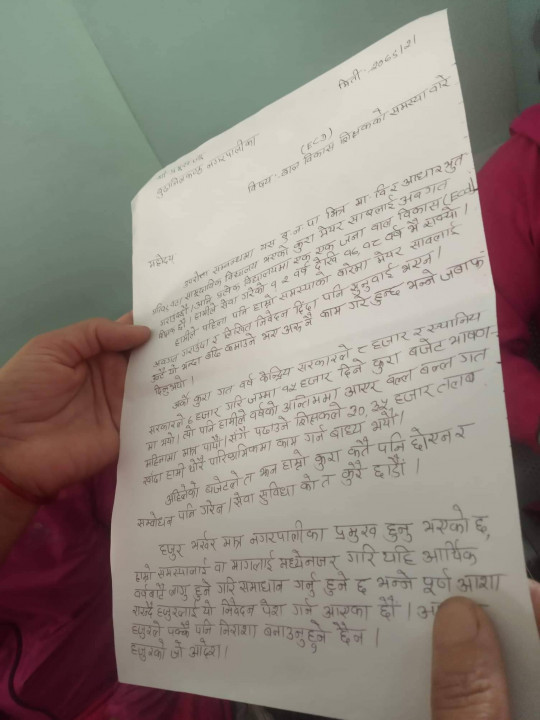 मिती - २०७९।२।
बुढानिलकण्ठ नगरपालिका
(ECD)
विषय - बाल विकास शिक्षकको समस्या बारे
महोदय
उपरोक्त सम्बन्धमा यस बु न पा भित्र मा वि र आधारभुत
सामुदायिक विद्यालय भएको कुरा मेयर सावलाई अवगत
प्रत्येक विद्यालयमा एक एक जना बाल विकास (Ecd)
हामीले सेवा गरेको १२ वर्ष देखि १७, १८ वर्ष भै सक्यो।
हामीले पहिला पनि हाम्रो समस्याको बारेमा मेयर सावलाई
अवगत गराउदा र लिखित निवेदन दिदा पनि सुनुवाई भएन।
यो भन्दा बढि कमाउने भए अन्तै काम गरे हुन्छ भन्ने जवाफ
दिनुभयो।
अर्को कुरा गत वर्ष केन्द्रिय सरकारले ८ हजार र स्थानिय
सरकारले ६ हजार गरि जम्मा १५ हजार दिने कुरा बजेट भाषण-
मा भयो। त्यो पनि हामीले वर्षको अन्तिममा आएर बल्ल बल्ल गत
महिनामा मात्र पायौं। संगै पढाउने शिक्षकले ३०, ३५ हजार तलब
खाँदा हामी थोरै पारिश्रमिकमा काम गर्न बाध्य भयौं।
अहिलेको बजेटले त झन हाम्रो कुरा कतै पनि छोएन र
सम्बोधन पनि गरेन। सेवा सुविधा को त कुरै छाडौं।
हजुर भर्खर मात्र नगरपालीका प्रमुख हुनु भएको छ,
हाम्रो समस्यालाई वा मागलाई मध्येनजर गरि यहि आर्थिक
वर्षबाटै लागु हुने गरि समाधान गर्नु हुने छ भन्ने पूर्ण आशा
राख्दै हजुरलाई यो निवेदन पेश गर्न आएका छौं।
हजुरले पक्कै पनि निराशा बनाउनु हुने छैन।
हजुरको जो आदेश।